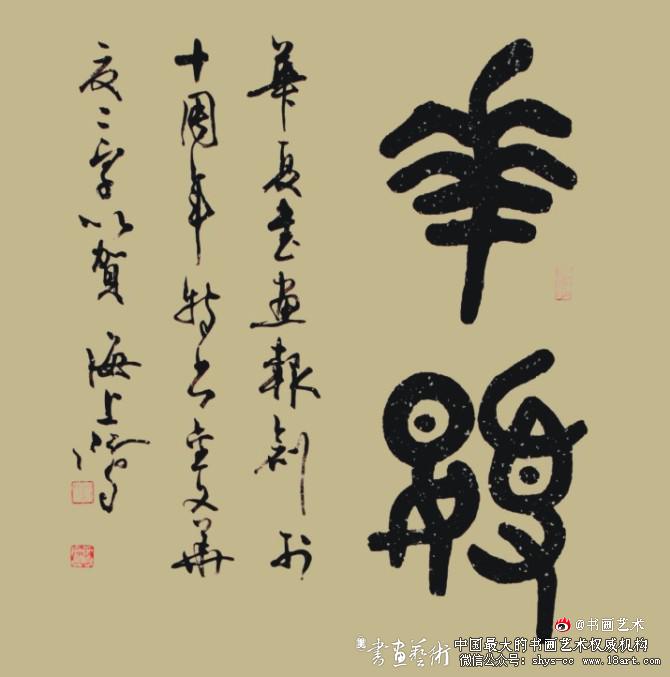 華夏
華夏书畫報創刊
十周年特书金文華
夏二字以賀 海上
@书画艺术
書畫藝術
中国最大的书画艺术权威机构
微信公众号：shys-cc www.18art.com